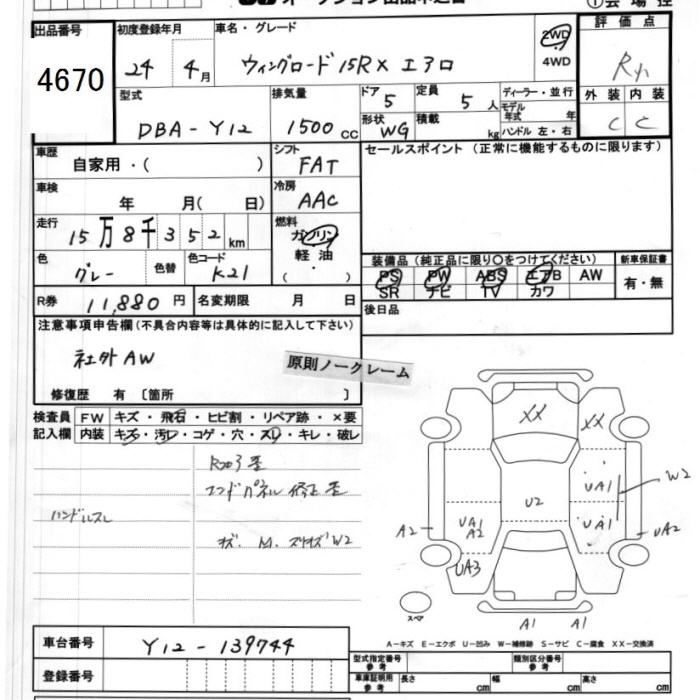 出品番号
4670
初度登録年月
24 年 4 月
車名・グレード
ウィングロード 15RX エアロ
2WD
4WD
評価点
R
外装 内装
C C
型式
DBA-Y12
排気量
1500 cc
ドア
5
定員
5 人
形状
WG
積載
kg
ディーラー・並行
モデル年式 年
ハンドル 左・右
車歴
自家用・( )
シフト
FAT
セールスポイント (正常に機能するものに限ります)
車検
年 月( 日)
冷房
AAC
走行
15万8千352 km
燃料
ガソリン
軽油
( ・ )
色
グレー
色替
色コード
K21
装備品 (純正品に限り○をつけてください)
新車保証書
PS PW ABS エアB AW
SR ナビ TV カワ
有・無
R券 11,880 円
名変期限 月 日
後日品
注意事項申告欄 (不具合内容等は具体的に記入して下さい)
社外AW
原則ノークレーム
修復歴 有 〔箇所 〕
検査員 FW キズ・飛石・ヒビ割・リペア跡・×要
記入欄 内装 キズ・汚レ・コゲ・穴・スレ・キレ・破レ
Rフロア歪
エンドパネル修正歪
ハンドルスレ
キズ.
W2
XX
XX
U2
UA1
UA1
W2
A2
UA1
A2
UA2
UA3
スペア
A1
A1
A-キズ E-エクボ U-凹み W-補修跡 S-サビ C-腐食 XX-交換済
車台番号
Y12-139744
登録番号
型式指定番号
参考
類別区分番号
参考
車庫証明用
参考
長さ cm
幅 cm
高さ cm